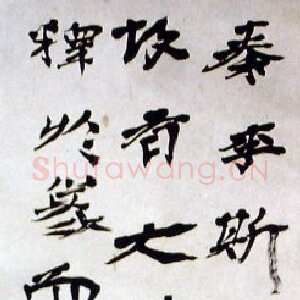 秦李斯
故有大
於篆而
Shufawang.CN